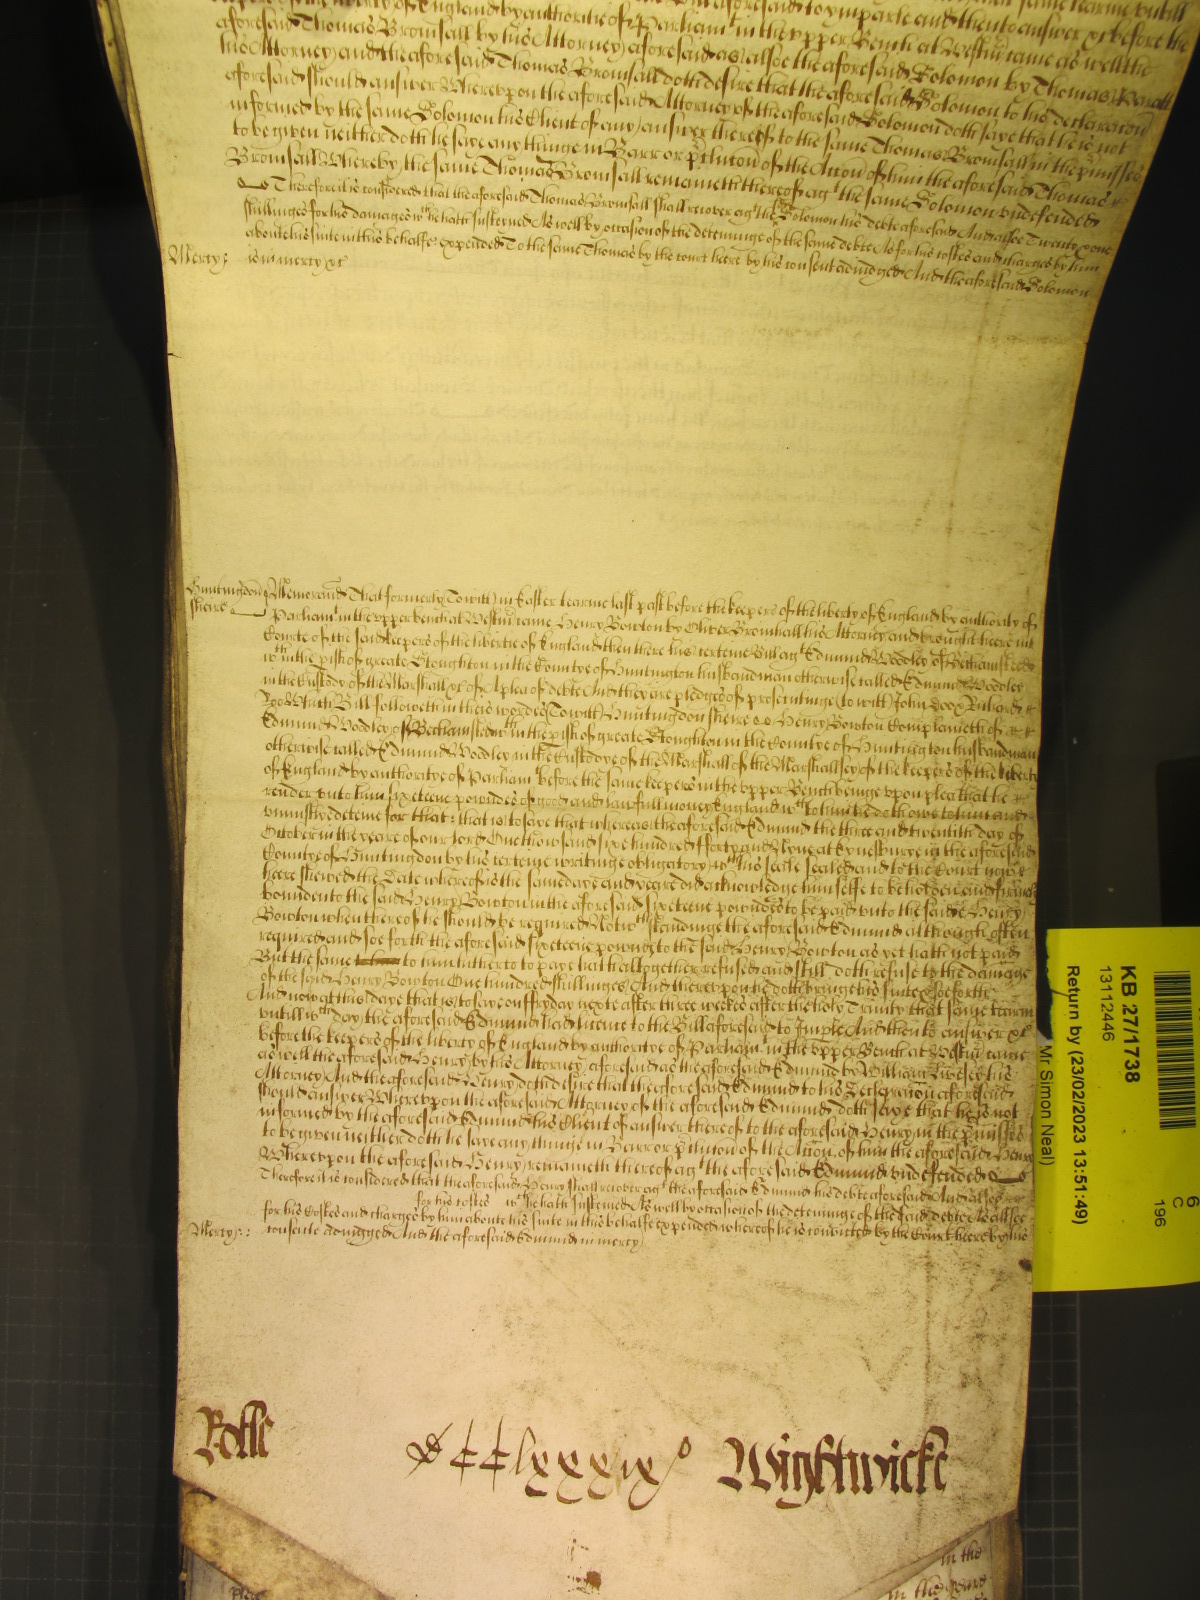 of England by authoritie of Parliamt in the upper Bench at Westmr came as well the
aforesaid Thomas Bromsall by his Attorney aforesaid as alsoe the aforesaid Solomon by Thomas
his Attorney And the aforesaid Thomas Bromsall doth desire that the aforesaid Solomon to his declaracon
aforesaid should answer Whereupon the aforesaid Attorney of the aforesaid Solomon doth saye that he is not
informed by the same Solomon his Client of any answer thereof to the same Thomas Bromsall in the pmisses
to be given neither doth he saye any thinge in Barr or pclusion of the Accon of him the aforesaid Thomas
Bromsall Whereby the same Thomas Bromsall remaineth thereof agt the same Solomon undefended
Therefore it is considered that the aforesaid Thomas Bromsall shall recover agt the sd Solomon his debte aforesaid And alsoe Twenty one
shillinges for his damages wch he hath susteined As well by occasion of the deteininge of the same debte As for his costes and charges by him
about his suite in this behalfe expended To the same Thomas by the court heere by his consent adiudged And the aforesaid Solomon
Mercy: is in mercy &c
Huntingdon Memorand That formerly To witt in Easter tearme last past before the keepers of the liberty of England by authority of
sheire Parliamt in the upper bench at Westmr came Henry Bowton by Oliver Bromhall his Attorney and brought heere into
Courte of the said keepers of the libertie of England then there his certeine Bill agt Edmund Woodley of
wthin the pish of greate Stoughton in the Countye of Huntington husbandman otherwise called Edmund Woodley
in the Custody of the Marshall &c of A plea of debte And they are pledges of prosecutinge (to witt) John Doo & Richard
Roo Which Bill followeth in theis wordes To witt Huntingdon sheire Henry Bowton Complaineth of
Edmund Woodley of wthin the pish of greate Stoughton in the Countye of Huntington husbandman
otherwise called Edmund Woodley in the Custodye of the Marshall of the Marshallsey of the keepers of the liberty
of England by authoritye of Parliamt before the same keepers in the upper Bench beinge upon plea that he
render unto him sixeteene powndes of good and lawfull money England wch to him he doth owe to him and
uniustly deteine for that: that is to saye that whereas the aforesaid Edmund the three and twentith day of
October in the yeare of our Lord One thowsand six hundred ffortye and Nyne at Kynesburye in the aforesaid
Countye of Huntingdon by his certeine writinge obligatory wth his seale sealed and to the Court nowe
heere shewed the Date whereof is the same daye and yeare did acknowledge himselfe to be holden and firmely
bounden to the said Henry Bowton in the aforesaid sixeteene powndes to be paid unto the saide Henry
Bowton when thereof he should be required Notwthstandinge the aforesaid Edmund although often
required and soe forth the aforesaid sixeteene powndes to the said Henry Bowton as yet hath not paid
But the same to him hitherto to paye hath alltogether refused and still doth refuse to the damage
of the said Henry Bowton One hundred shillinges And thereupon he doth bringe his suite & soe forth
And now att this daye that is to saye on ffryday nexte after three weekes after the holy Trinity that same tearme
untill wch day the aforesaid Edmund had licence to the Bill aforesaid to Imple And then to answer &c
before the keepers of the liberty of England by authoritye of Parliamt in the upper Bench at Westmr came
as well the aforesaid Henry by his Attorney aforesaid as the aforesaid Edmund by William Livesey his
Attorney And the aforesaid Henry doth desire that the aforesaid Edmund to his Declaracon aforesaid
should answer Whereupon the aforesaid Attorney of the aforesaid Edmund doth saye that he is not
informed by the aforesaid Edmund his Client of answer thereof to the aforesaid Henry in the pmisses
to be given neither doth he saye any thinge in Barr or pclusion of the Accon of him the aforesaid Henry
Whereupon the aforesaid Henry remaineth thereof agt the aforesaid Edmund undefended
Therefore it is considered that the aforesaid Henry shall recover agt the aforesaid Edmund his debte aforesaid And alsoe
for his costes wch he hath susteined As well by occasion of the deteininge of the said debte As alsoe
for his Costes and charges by him about his suite in this behalfe expended whereof he is convicted by the Court heere by his
Mercy: consente adiudged And the aforesaid Edmund in mercy
Rolle CClxxxixo Wightwicke
in the
in the
KB 27/1738
13112446
Return by (23/02/2023 13:51:49)
Mr Simon Neal)
6
C
196